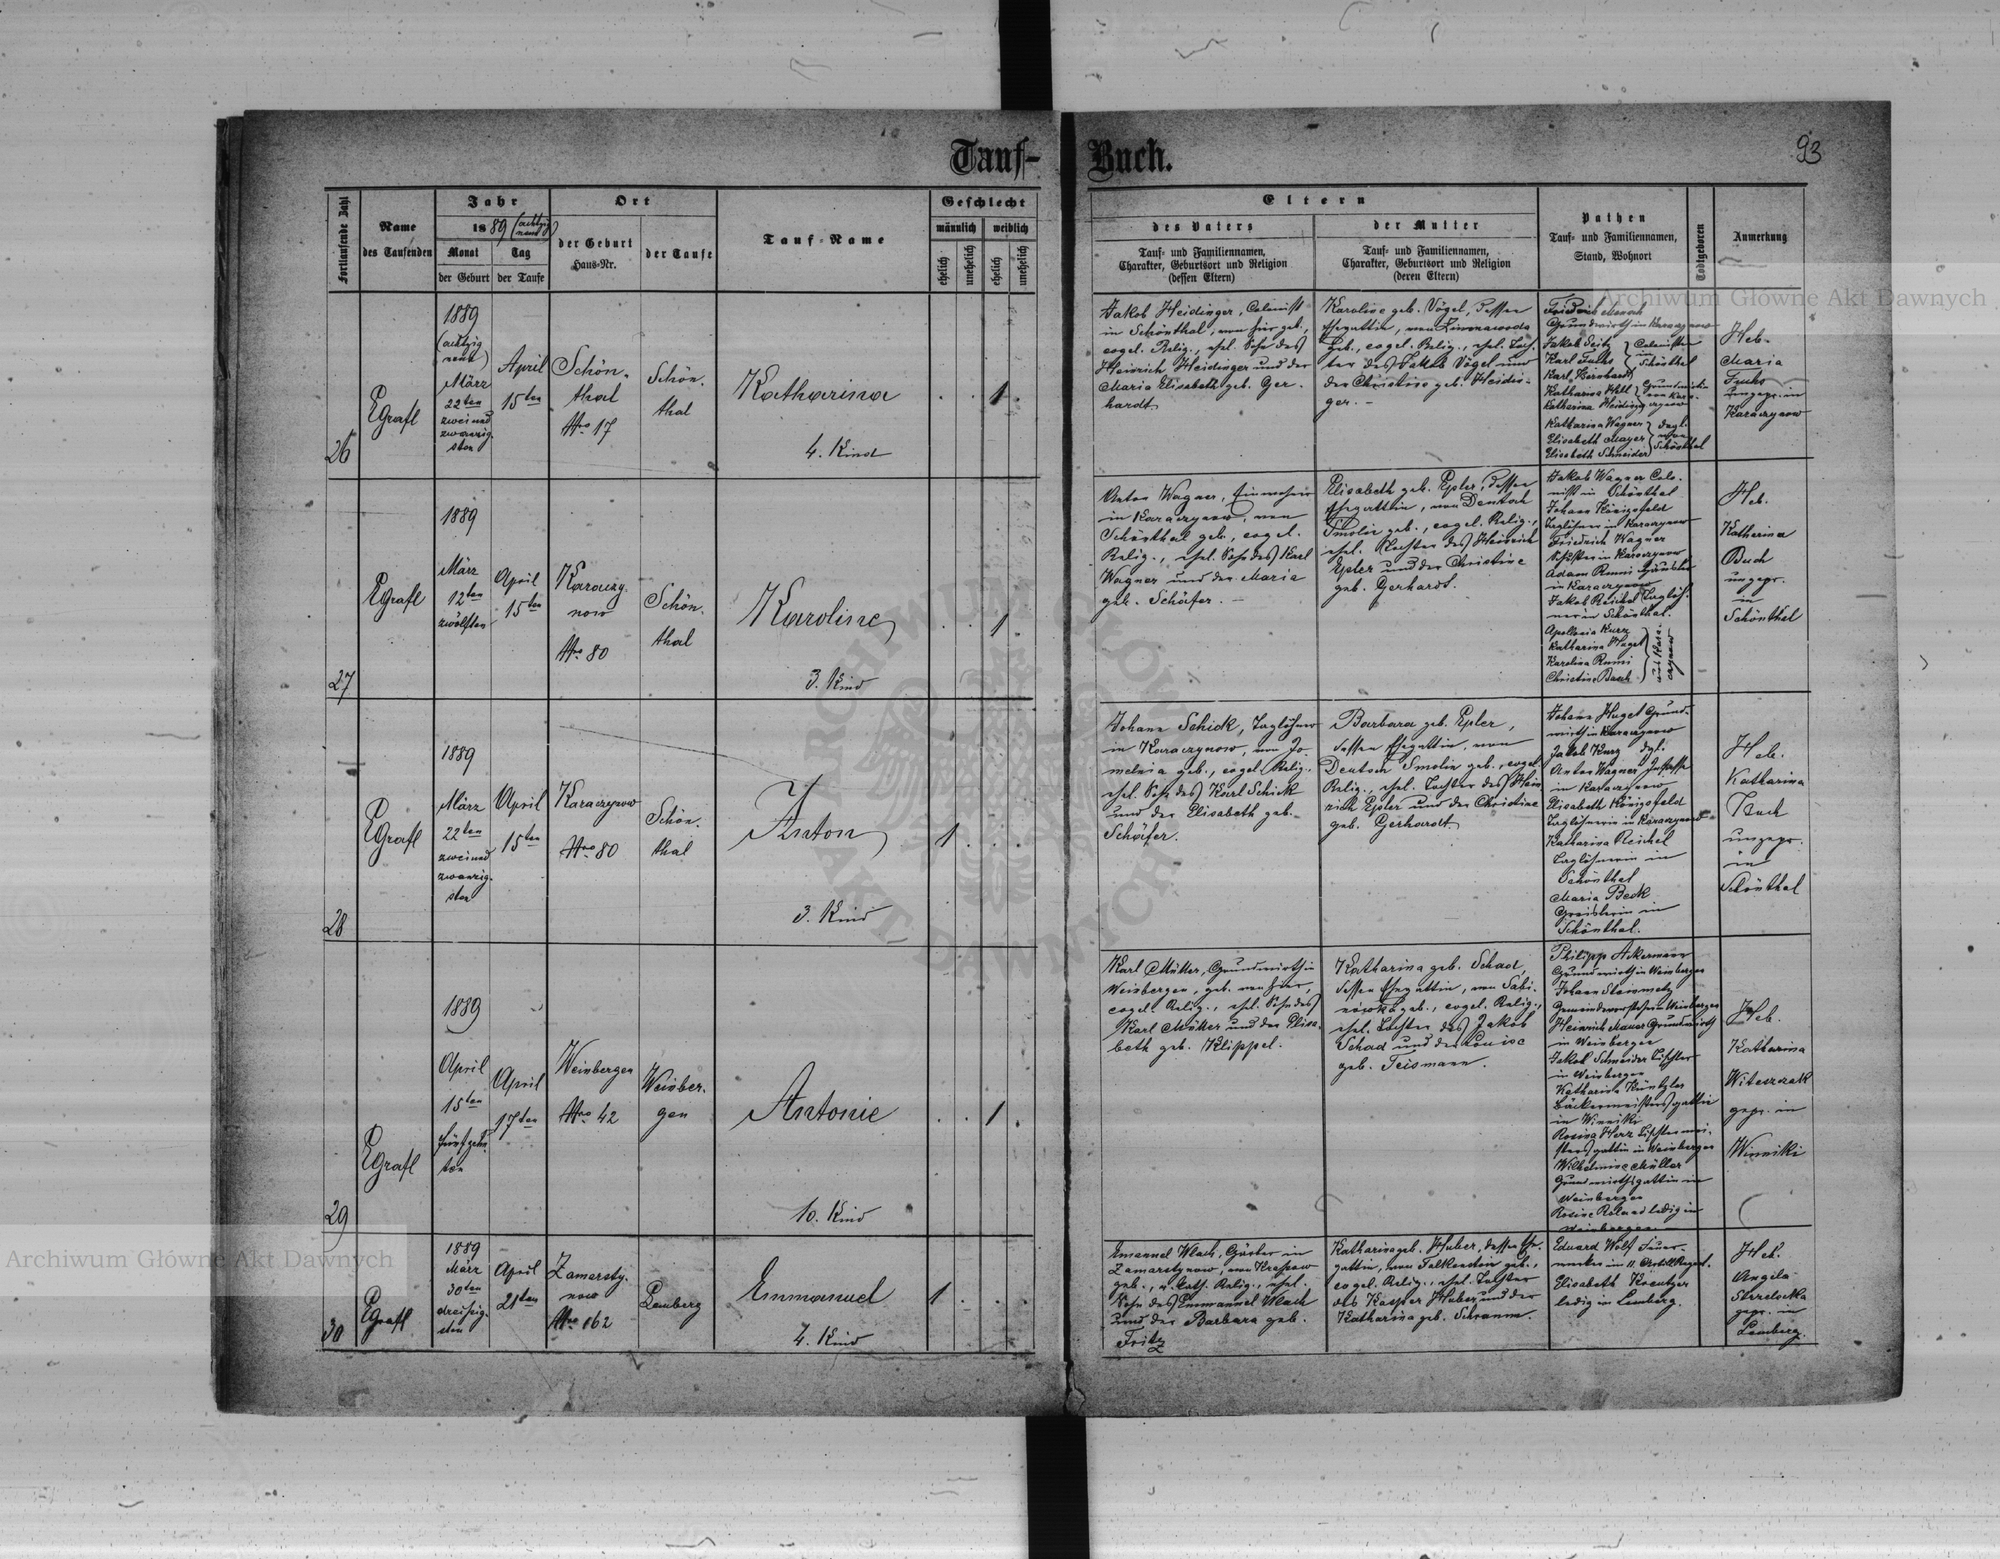 Tauf-Buch.
93
Fortlaufende Zahl
Name
des Taufenden
Jahr
1889 (achtzig
neun)
Monat
der Geburt
Tag
der Taufe
Ort
der Geburt
Haus-Nr.
der Taufe
Tauf-Name
Geschlecht
männlich
weiblich
ehelich
unehelich
ehelich
unehelich
Eltern
des Vaters
Tauf- und Familiennamen,
Charakter, Geburtsort und Religion
(dessen Eltern)
der Mutter
Tauf- und Familiennamen,
Charakter, Geburtsort und Religion
(deren Eltern)
Pathen
Tauf- und Familiennamen,
Stand, Wohnort
Todtgeboren
Anmerkung
26
Egrafl
1889
(achtzig
neun)
März
22ten
zwei und
zwanzig-
sten
April
15ten
Schön-
thal
Nro 17
Schön-
thal
Katharina
4. Kind
1
Jakob Heidinger, Colonist
in Schönthal, von hier geb.,
evgel. Relig., ehel. Sohn des
Heinrich Heidinger und der
Maria Elisabeth geb. Ger-
hardt
Karoline geb. Vögel, dessen
Ehegattin, von
geb., evgel. Relig., ehel. Toch-
ter des Jakob Vögel und
der Christine geb. Heidin-
ger. -
Friedrich
Grundwirth in Karaczynow
Jakob Seitz
Karl Fuchs
Karl Bernhardt
Colonisten
in
Schönthal
Katharina
Katharina Heidinger
Katharina Wagner
Elisabeth Mayer
Elisabeth Schneider
Schönthal
Heb.
Maria
Fuchs
ungepr. in
Karaczynow
27
Egrafl
1889
März
12ten
zwölften
April
15ten
Karaczy-
now
Nro 80
Schön-
thal
Karoline
3. Kind
1
Anton Wagner, Einwohner
in Karaczynow, von
Schönthal geb., evgel.
Relig., ehel. Sohn des Karl
Wagner und der Maria
geb. Schäfer. -
Elisabeth geb. Epler, dessen
Ehegattin, von Deutsch
Smolin geb., evgel. Relig.,
ehel. Tochter des Heinrich
Epler und der Christine
geb. Gerhardt.
Jakob Wagner Colo-
nist in Schönthal
Johann Königsfeld
Taglöhner in Karaczynow
Friedrich Wagner
Schuster in Karaczynow
Adam Rumi
in Karaczynow
Jakob Reichel Taglöh-
ner in Schönthal.
Apollonia Kurz
Katharina Hugel
Karolina Rumi
Christine Bach
Heb.
Katharina
Buch
ungepr.
in
Schönthal
28
Egrafl
1889
März
22ten
zwei und
zwanzig-
sten
April
15ten
Karaczynow
Nro 80
Schön-
thal
Anton
3. Kind
1
Johann Schick, Taglöhner
in Karaczynow, von Ja-
melnia geb., evgel. Relig.
ehel. Sohn des Karl Schick
und der Elisabeth geb.
Schäfer.
Barbara geb. Epler,
dessen Ehegattin, von
Deutsch Smolin geb., evgel.
Relig., ehel. Tochter des Hein-
rich Epler und der Christine
geb. Gerhardt.
Johann Hugel Grund-
wirth in Karaczynow
Jakob Kurz dgl.
Anton Wagner
in Karaczynow
Elisabeth Königsfeld
Taglöhnerin in Karaczynow
Katharina Reichel
Taglöhnerin in
Schönthal
Maria Beck
in
Schönthal.
Heb.
Katharina
Buch
ungepr.
in
Schönthal
29
Egrafl
1889
April
15ten
fünfzehn-
ten
April
17ten
Weinbergen
Nro 42
Weinber-
gen
Antonie
10. Kind
1
Karl Müller, Grundwirth in
Weinbergen, geb. von hier,
evgel. Relig., ehel. Sohn des
Karl Müller und der Elisa-
beth geb. Klippel.
Katharina geb. Schad,
dessen Ehegattin, von
geb., evgel. Relig.,
ehel. Tochter des Jakob
Schad und der Louise
geb. Teismann.
Philipp Ackermann
Grundwirth in Weinbergen
Johann Steinmetz
Gemeindevorsteher in Weinbergen
Heinrich Mauer Grundwirth
in Weinbergen
Jakob Schneider Tischler
in Weinbergen
Katharina Küntzler
Bäckermeistersgattin
in Winniki
Rosina Herz Tischlermei-
stersgattin in Weinbergen
Wilhelmine Müller
Grundwirthsgattin in
Weinbergen
Rosine Roland ledig in
Weinbergen
Heb.
Katharina
Witeszczak
gepr. in
Winniki
30
Egrafl
1889
März
30ten
dreißig-
sten
April
21ten
Zamarsty-
now
Nro 162
Lemberg
Emmanuel
4. Kind
1
Emanuel Wlach, Gärtner in
Zamarstynow, von
geb., r. kath. Relig., ehel.
Sohn des Emmanuel Wlach
und der Barbara geb.
Fritz
Katharina geb. Huber, dessen Ehe-
gattin, von Falkenstein geb.,
evgel. Relig., ehel. Tochter
des Kasper Huber und der
Katharina geb. Schramm.
Eduard Wolf Feuer-
werker im 11. Artill. Regmt.
Elisabeth Kreutzer
ledig in Lemberg.
Heb.
Angela
Strzelecka
gepr. in
Lemberg.
Archiwum Główne Akt Dawnych
Archiwum Główne Akt Dawnych
ARCHIWUM GŁÓWNE AKT DAWNYCH